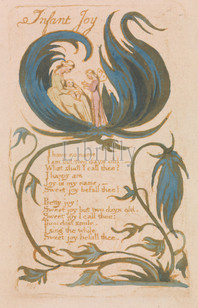 Infant Joy
I have no name
I am but two days old.
What shall I call thee?
I happy am
Joy is my name,
Sweet joy befall thee!
Pretty joy!
Sweet joy but two days old.
Sweet joy I call thee:
Thou dost smile.
I sing the while
Sweet joy befall thee.